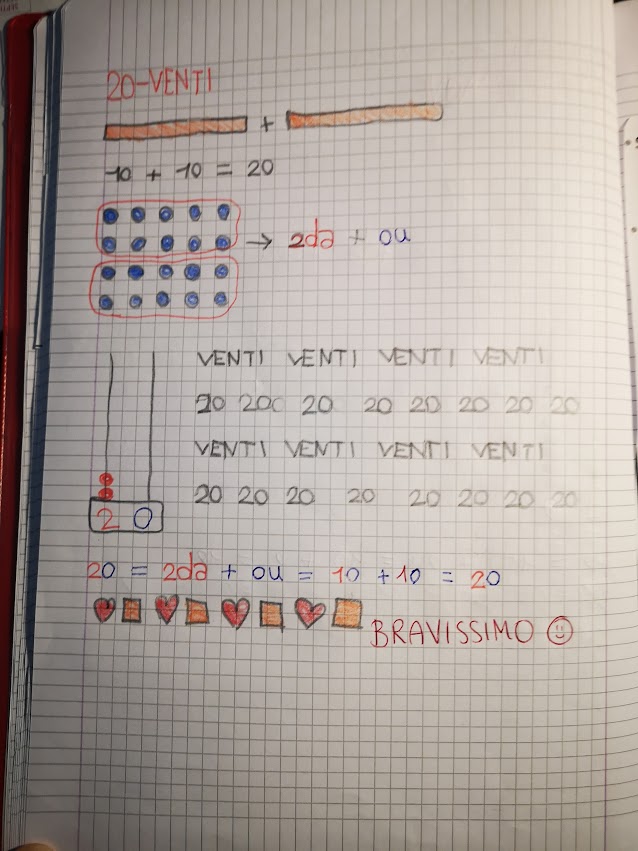 20-VENTI
+
10 + 10 = 20
→ 2da + 0u
VENTI VENTI VENTI VENTI
20 200 20 20 20 20 20 20
VENTI VENTI VENTI VENTI
20 20 20 20 20 20 20 20
2 0
20 = 2da + 0u = 10 + 10 = 20
BRAVISSIMO